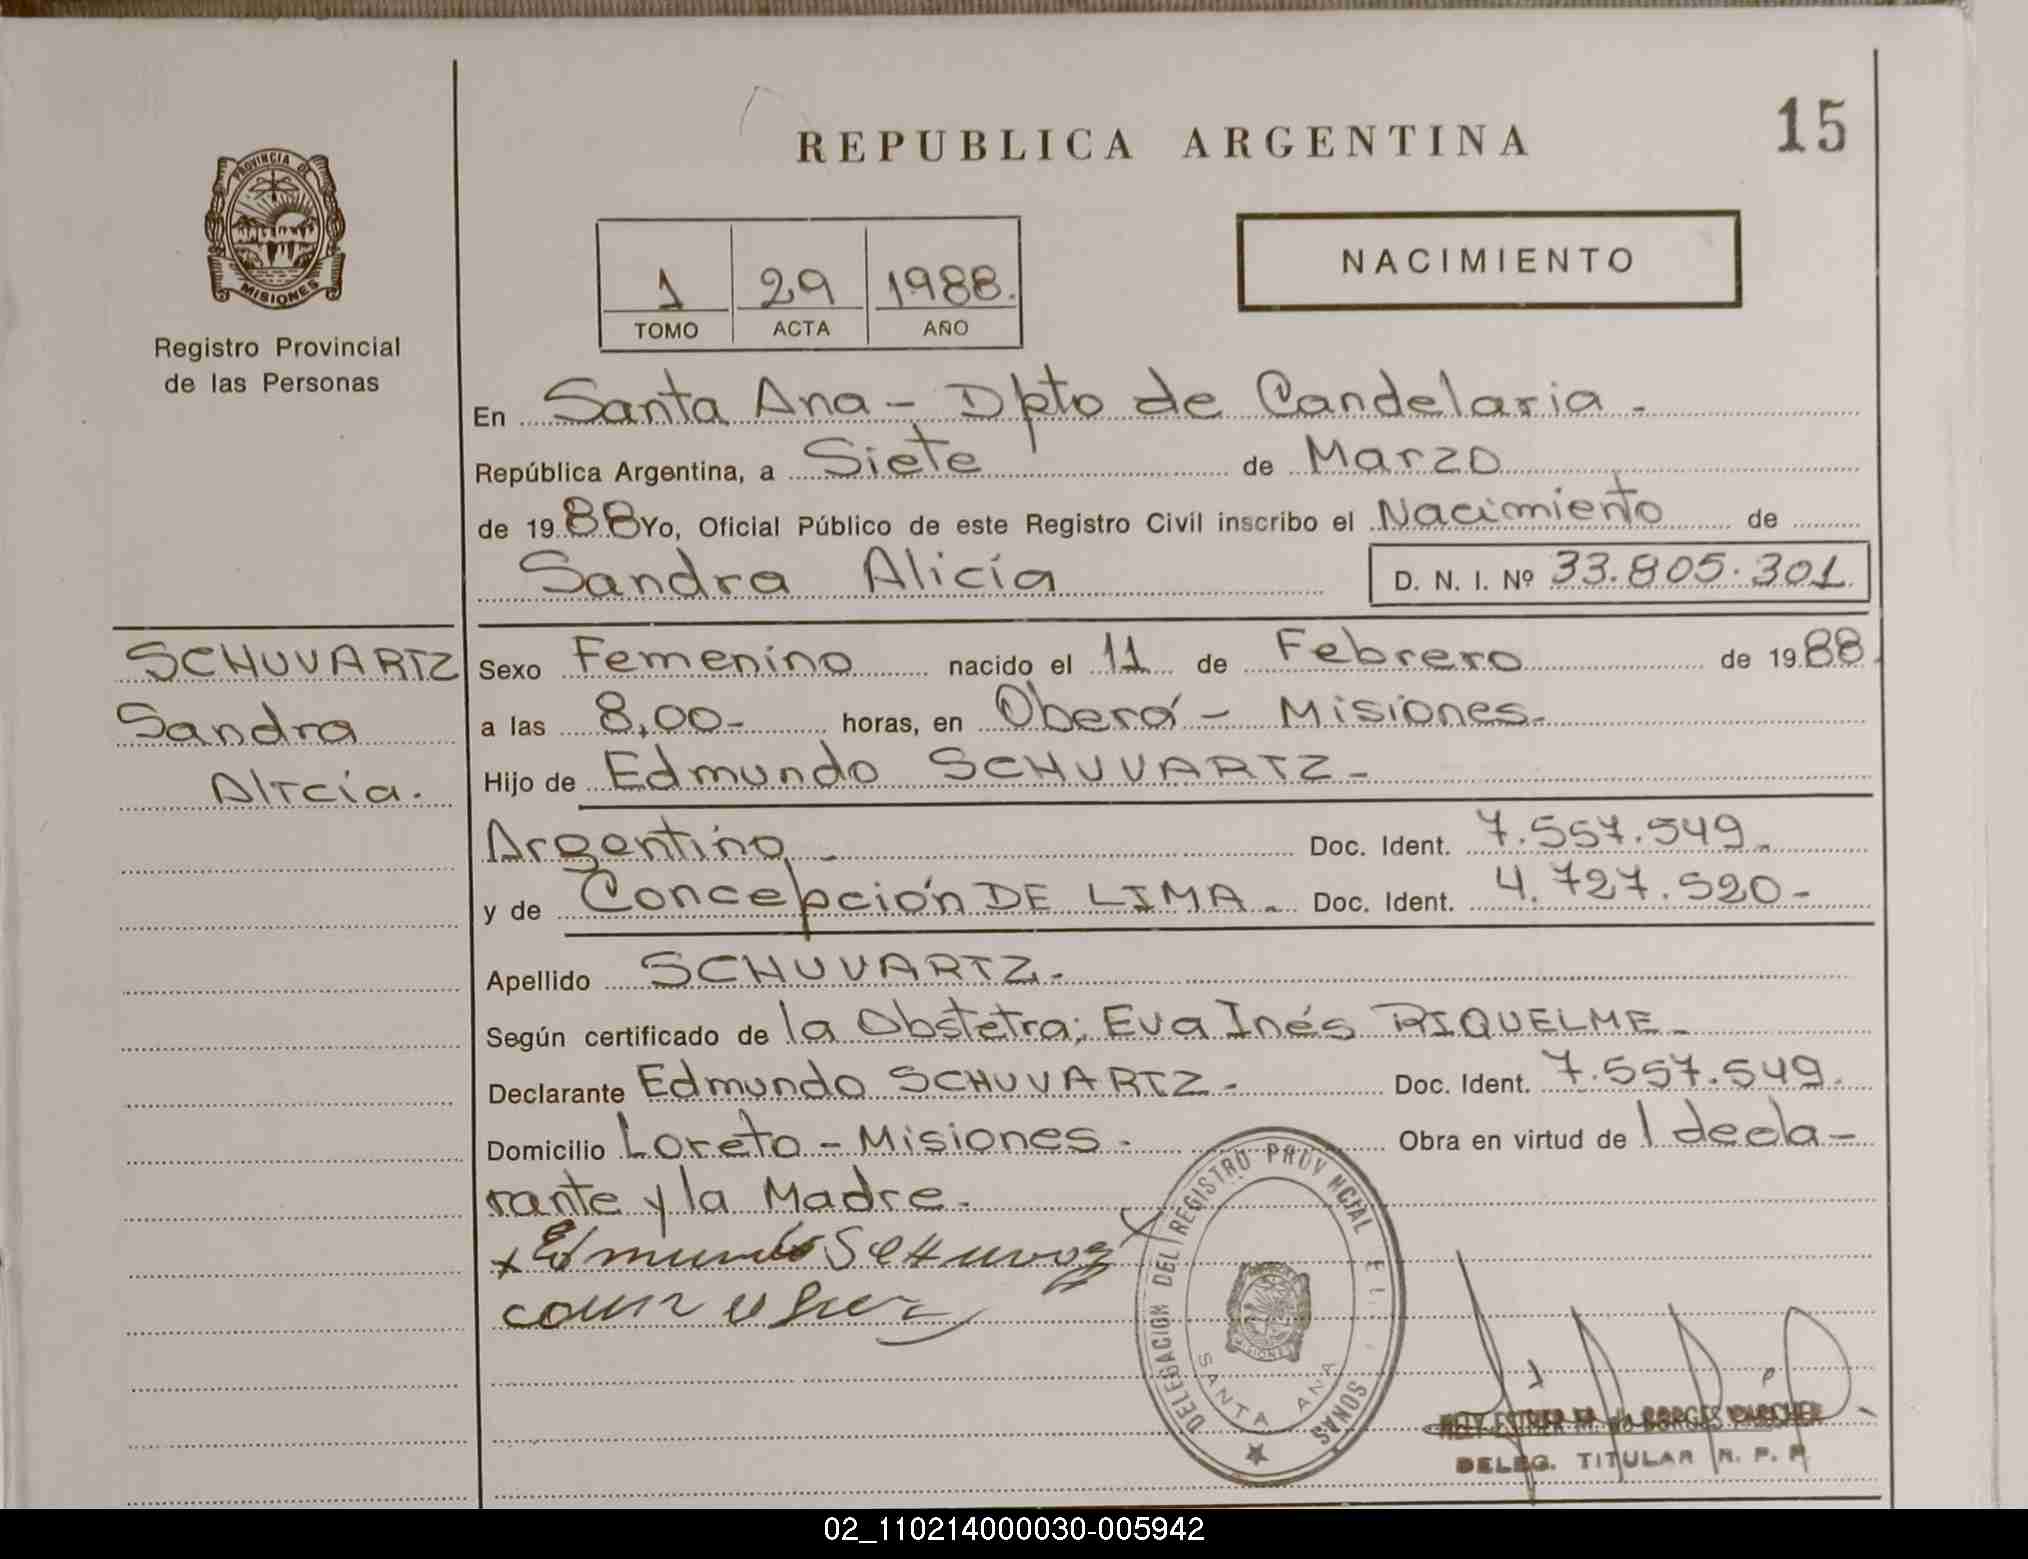 REPUBLICA ARGENTINA
15
PROVINCIA DE
MISIONES
Registro Provincial
de las Personas
1 29 1988.
TOMO ACTA AÑO
NACIMIENTO
En Santa Ana - Dpto de Candelaria.
República Argentina, a Siete de Marzo
de 1988 Yo, Oficial Público de este Registro Civil inscribo el Nacimiento de
Sandra Alicia D. N. I. Nº 33.805.301
SCHUVARTZ
Sandra
Alicia.
Sexo Femenino nacido el 11 de Febrero de 1988.
a las 8,00- horas, en Oberá - Misiones.
Hijo de Edmundo SCHUVARTZ-
Argentino. Doc. Ident. 7.557.549.
y de Concepción DE LIMA. Doc. Ident. 4.727.520-
Apellido SCHUVARTZ.
Según certificado de la Obstetra; Eva Inés RIQUELME.
Declarante Edmundo SCHUVARTZ- Doc. Ident. 7.557.549.
Domicilio Loreto - Misiones. Obra en virtud de l decla-
rante y la Madre.
x Edmundo
DELEGACION DEL REGISTRO PROVINCIAL
SANTA ANA
DELEG. TITULAR R. P. P.
02_110214000030-005942